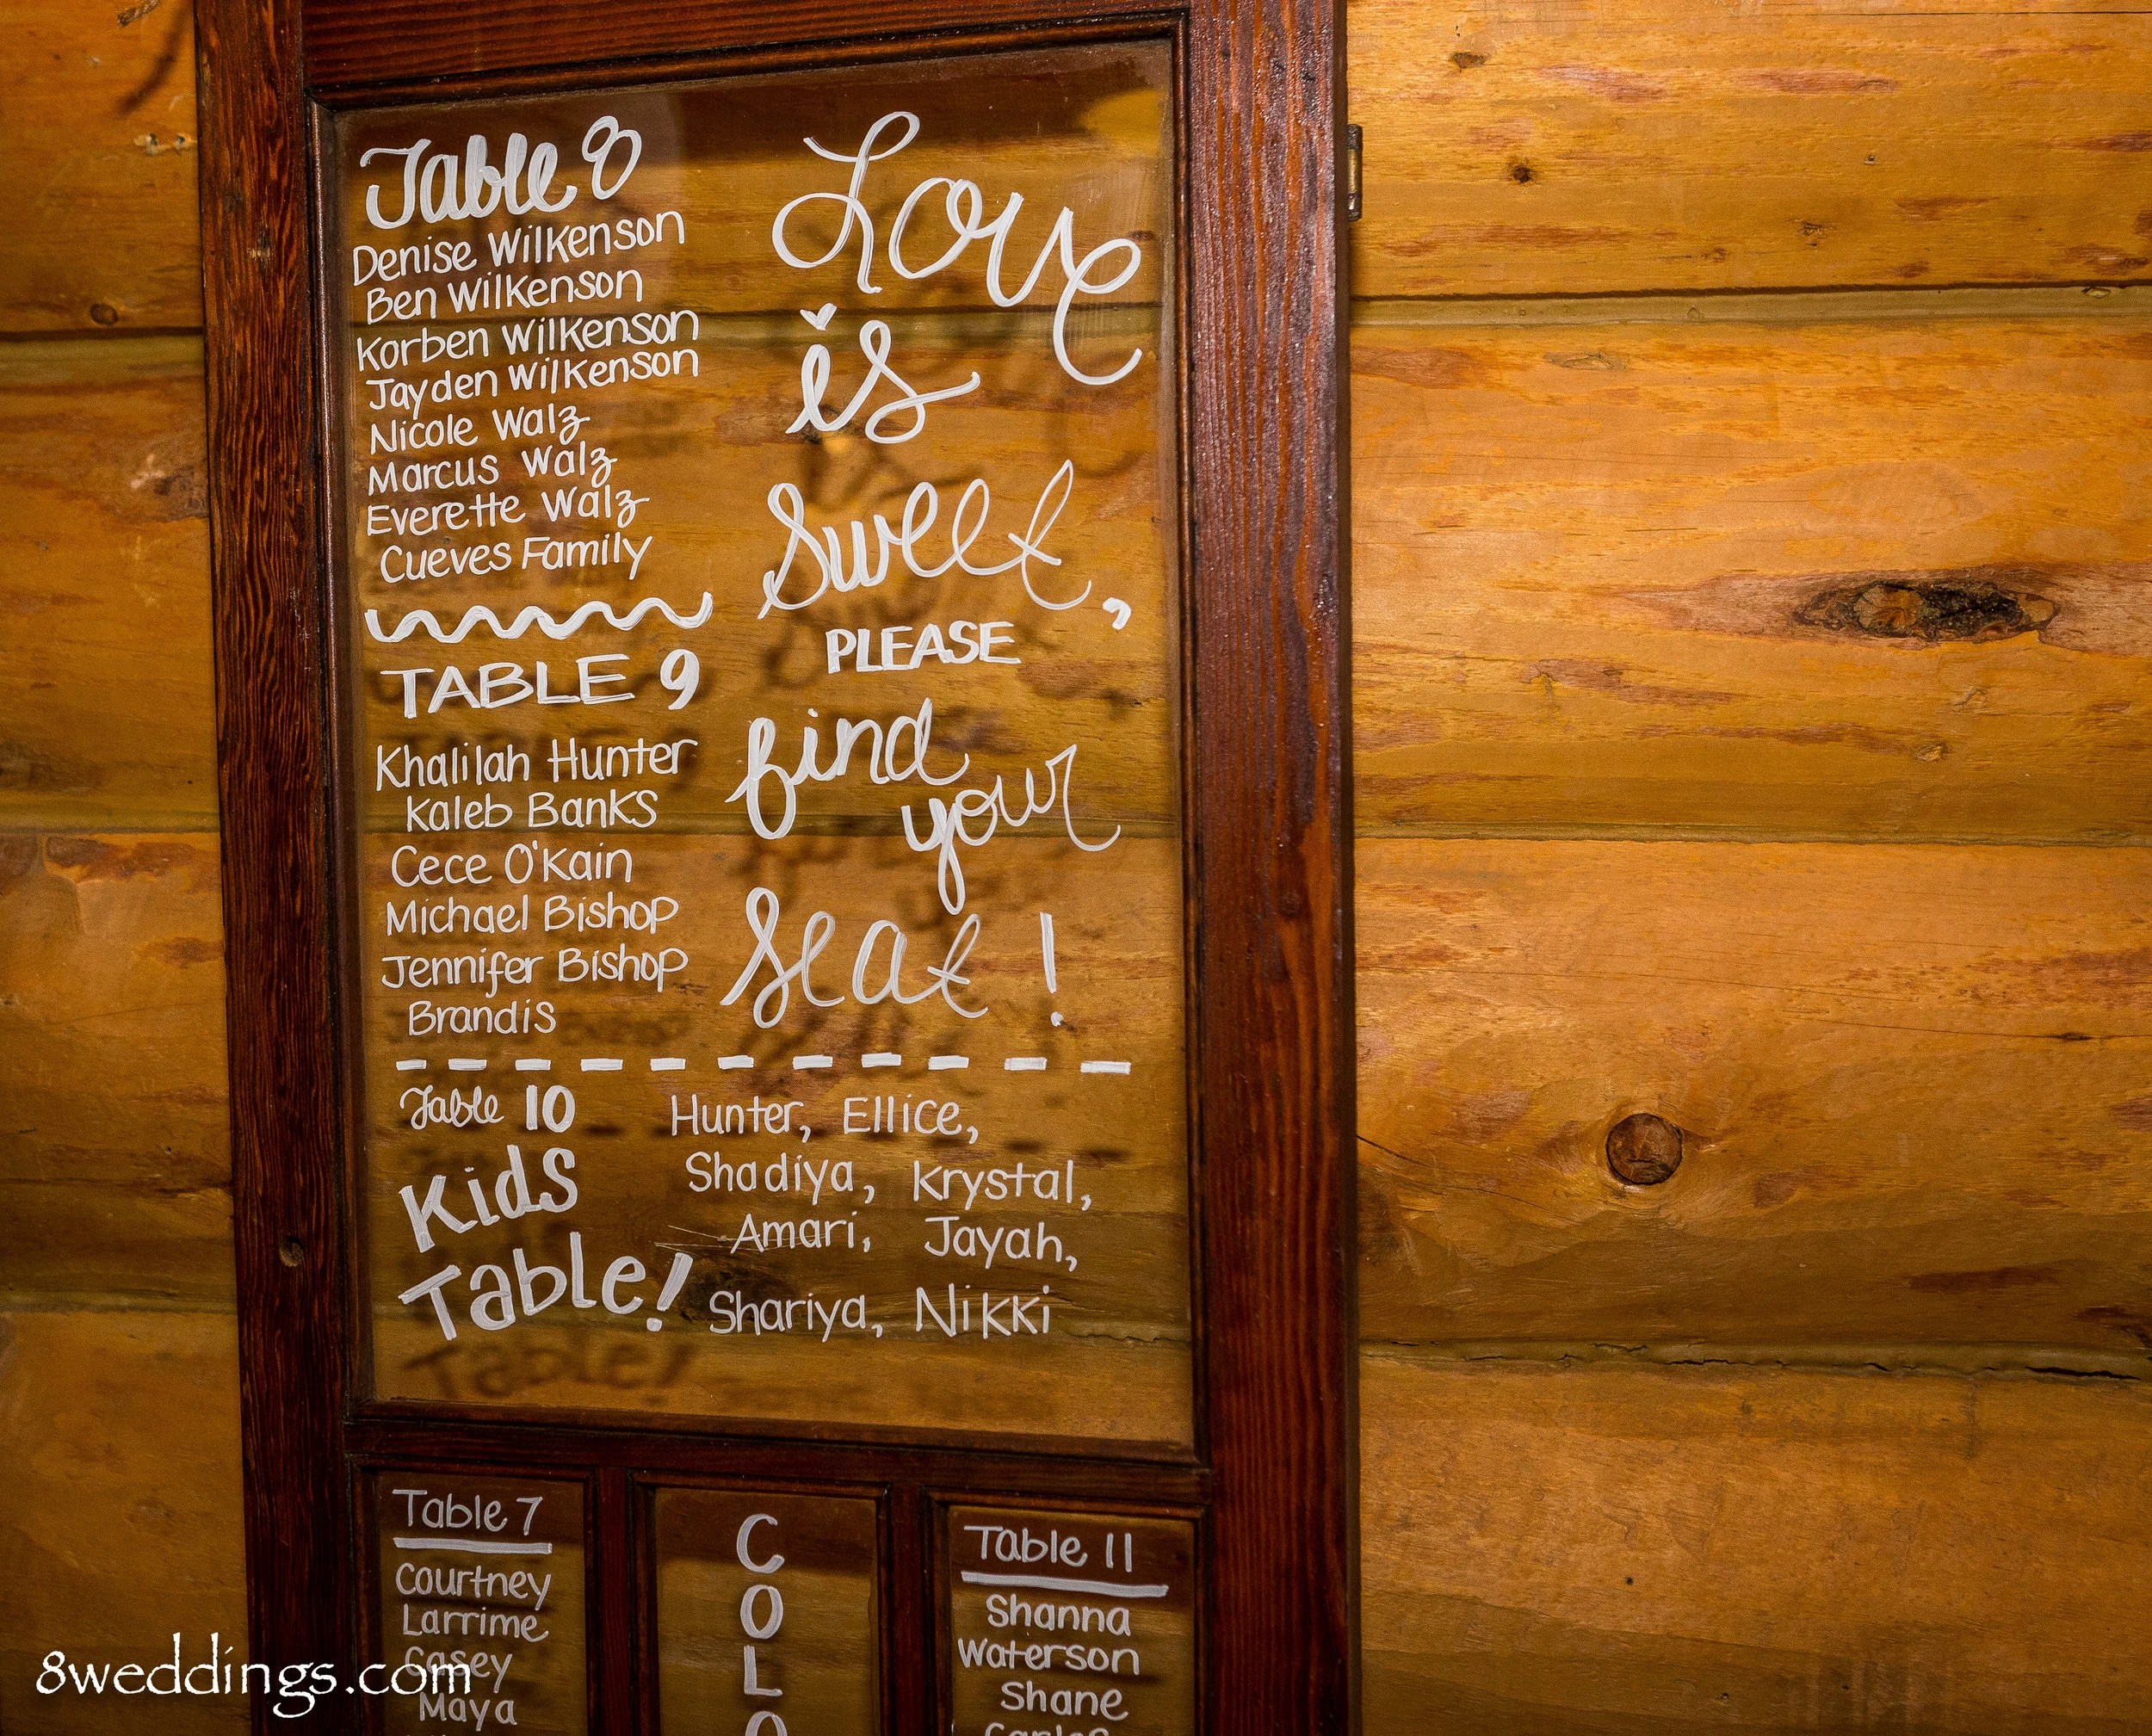 Table 8
Denise Wilkenson
Ben Wilkenson
Korben Wilkenson
Jayden Wilkenson
Nicole Walz
Marcus Walz
Everette Walz
Cueves Family
TABLE 9
Khalilah Hunter
Kaleb Banks
Cece O'Kain
Michael Bishop
Jennifer Bishop
Brandis
Love
is
Sweet,
PLEASE
find
your
Seat!
Table 10
Kids
Table!
Hunter, Ellice,
Shadiya, Krystal,
Amari, Jayah,
Shariya, Nikki
Table 7
Courtney
Larrime
Casey
Maya
C
O
L
O
Table 11
Shanna
Waterson
Shane
8weddings.com